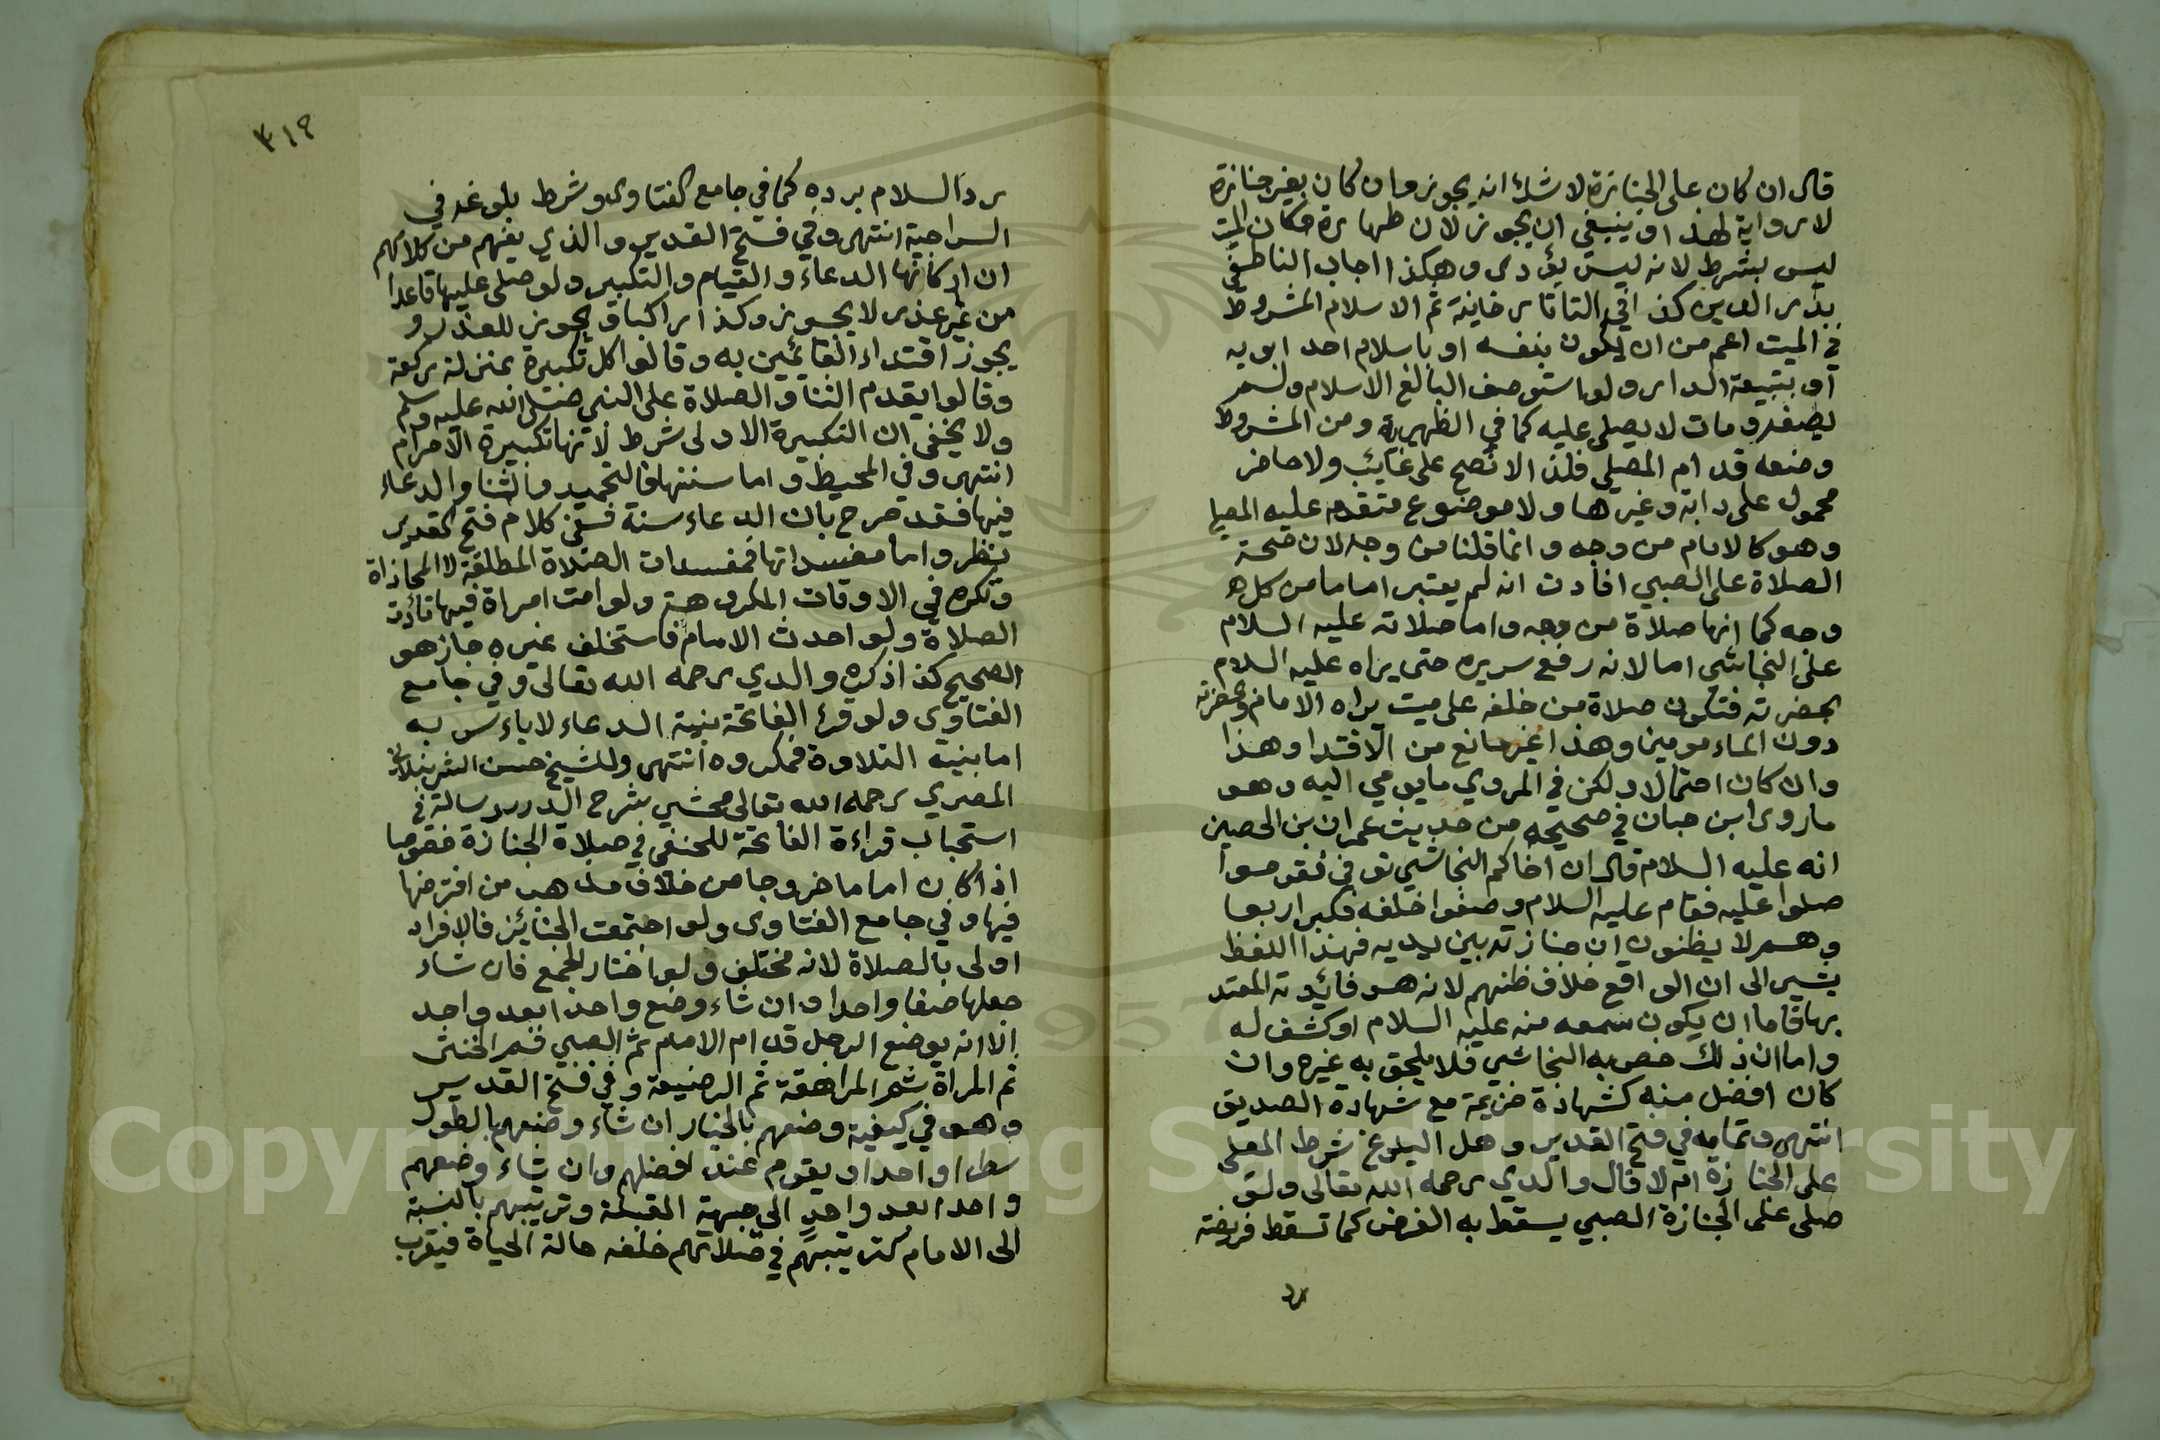 قال ان كان على الجنازة لا شك انه يجوز وان كان بغير جنازة
لا رواية لهذا وينبغي ان يجوز لان طهارة مكان الميت
ليس بشرط لانه ليس يؤدى وهكذا اجاب الناطفي
بدر الدين كذا في التاتارخانية ثم الاسلام المشروط
في الميت اعم من ان يكون بنفسه او باسلام احد ابويه
او بتبعية الدار ولو استوصف البالغ الاسلام ولم
يصفه ومات لا يصلى عليه كما في الظهيرية ومن المشروط
وضعه قدام المصلي فلذا لا تصح على غايب ولا حاضر
محمول على دابة وغيرها ولا موضوع متقدم عليه المصلي
وهو كالامام من وجه وانما قلنا من وجه لان صحة
الصلاة على الصبي افادت انه لم يعتبر اماما من كل
وجه كما انها صلاة من وجه واما صلاته عليه السلام
على النجاشى اما لانه رفع سريره حتى يراه عليه السلام
بحضرته فتكون صلاة من خلفه على ميت يراه الامام وبحضرته
دون الماءمومين وهذا غير مانع من الاقتدا وهذا
وان كان احتمالا ولكن في المروي ما يومي اليه وهو
ما روى ابن حبان في صحيحه من حديث عمران بن الحصين
انه عليه السلام قال ان اخاكم النجاشي توفي فقوموا
صلوا عليه فقام عليه السلام وصفوا خلفه فكبر اربعا
وهم لا يظنون ان جنازته بين يديه فهذا اللفظ
يشير الى ان الواقع خلاف ظنهم لانه هو فائدته المعتد
بها فاما ان يكون سمعه منه عليه السلام او كشف له
واما ان ذلك خص به النجاشي فلا يلحق به غيره وان
كان افضل منه كشهادة خزيمة مع شهادة الصديق
انتهى وتمامه في فتح القدير وهل البلوغ شرط المصلى
على الجنازة ام لا قال والدي رحمه الله تعالى ولو
صلى على الجنازة الصبي يسقط به الفرض كما تسقط فريضة
رد
٣١٩
رد السلام برده كما في جامع الفتاوى وشرط بلوغه في
السراجية انتهى وفي فتح القدير والذي يفهم من كلامهم
ان اركانها الدعاء والقيام والتكبير ولو صلى عليها قاعدا
من غير عذر لا يجوز وكذا راكبا ويجوز للعذر و
يجوز اقتداء القائمين به وقالوا كل تكبيرة بمنزلة ركعة
وقالوا يقدم الثنا والصلاة على النبي صلى الله عليه وسلم
ولا يخفى ان التكبيرة الاولى شرط لانها تكبيرة الاحرام
انتهى وفي المحيط واما سننها فالتحميد والثنا والدعاء
فيها فقد صرح بان الدعاء سنة ففي كلام فتح القدير
نظر واما مفسداتها فمفسدات الصلاة المطلقة لا المحاذاة
وتكره في الاوقات المكروهة ولو امت امراة فيها تأدت
الصلاة ولو احدث الامام فاستخلف غيره جاز هو
الصحيح كذا ذكره والدي رحمه الله تعالى وفي جامع
الفتاوى ولو قرئ الفاتحة بنية الدعاء لاباءس به
اما بنية التلاوة فمكروه انتهى وللشيخ حسن الشرنبلالي
المصري رحمه الله تعالى محشي شرح الدرر رسالة في
استحباب قراءة الفاتحة للحنفي في صلاة الجنازة خصوصا
اذا كان اماما خروجا من خلاف مذهب من افترضها
فيها وفي جامع الفتاوى ولو اجتمعت الجنائز فالافراد
اولى بالصلاة لانه مختلف ولو اختار الجمع فان شاء
جعلها صفا واحدا وان شاء وضع واحدا بعد واحد
الا انه يوضع الرجل قدام الامام ثم الصبي ثم الخنثى
ثم المراة ثم المراهقة ثم الرضيعة وفي فتح القدير
وهو في كيفية وضعهم بالخيار ان شاء وضعهم بالطول
سطرا واحدا ويقوم عند افضلهم وان شاء وضعهم
واحدا بعد واحد الى جهة القبلة وترتيبهم بالنسبة
الى الامام كترتيبهم في صلاتهم خلفه حالة الحياة فيقرب
Copyright © King Saud University
1957